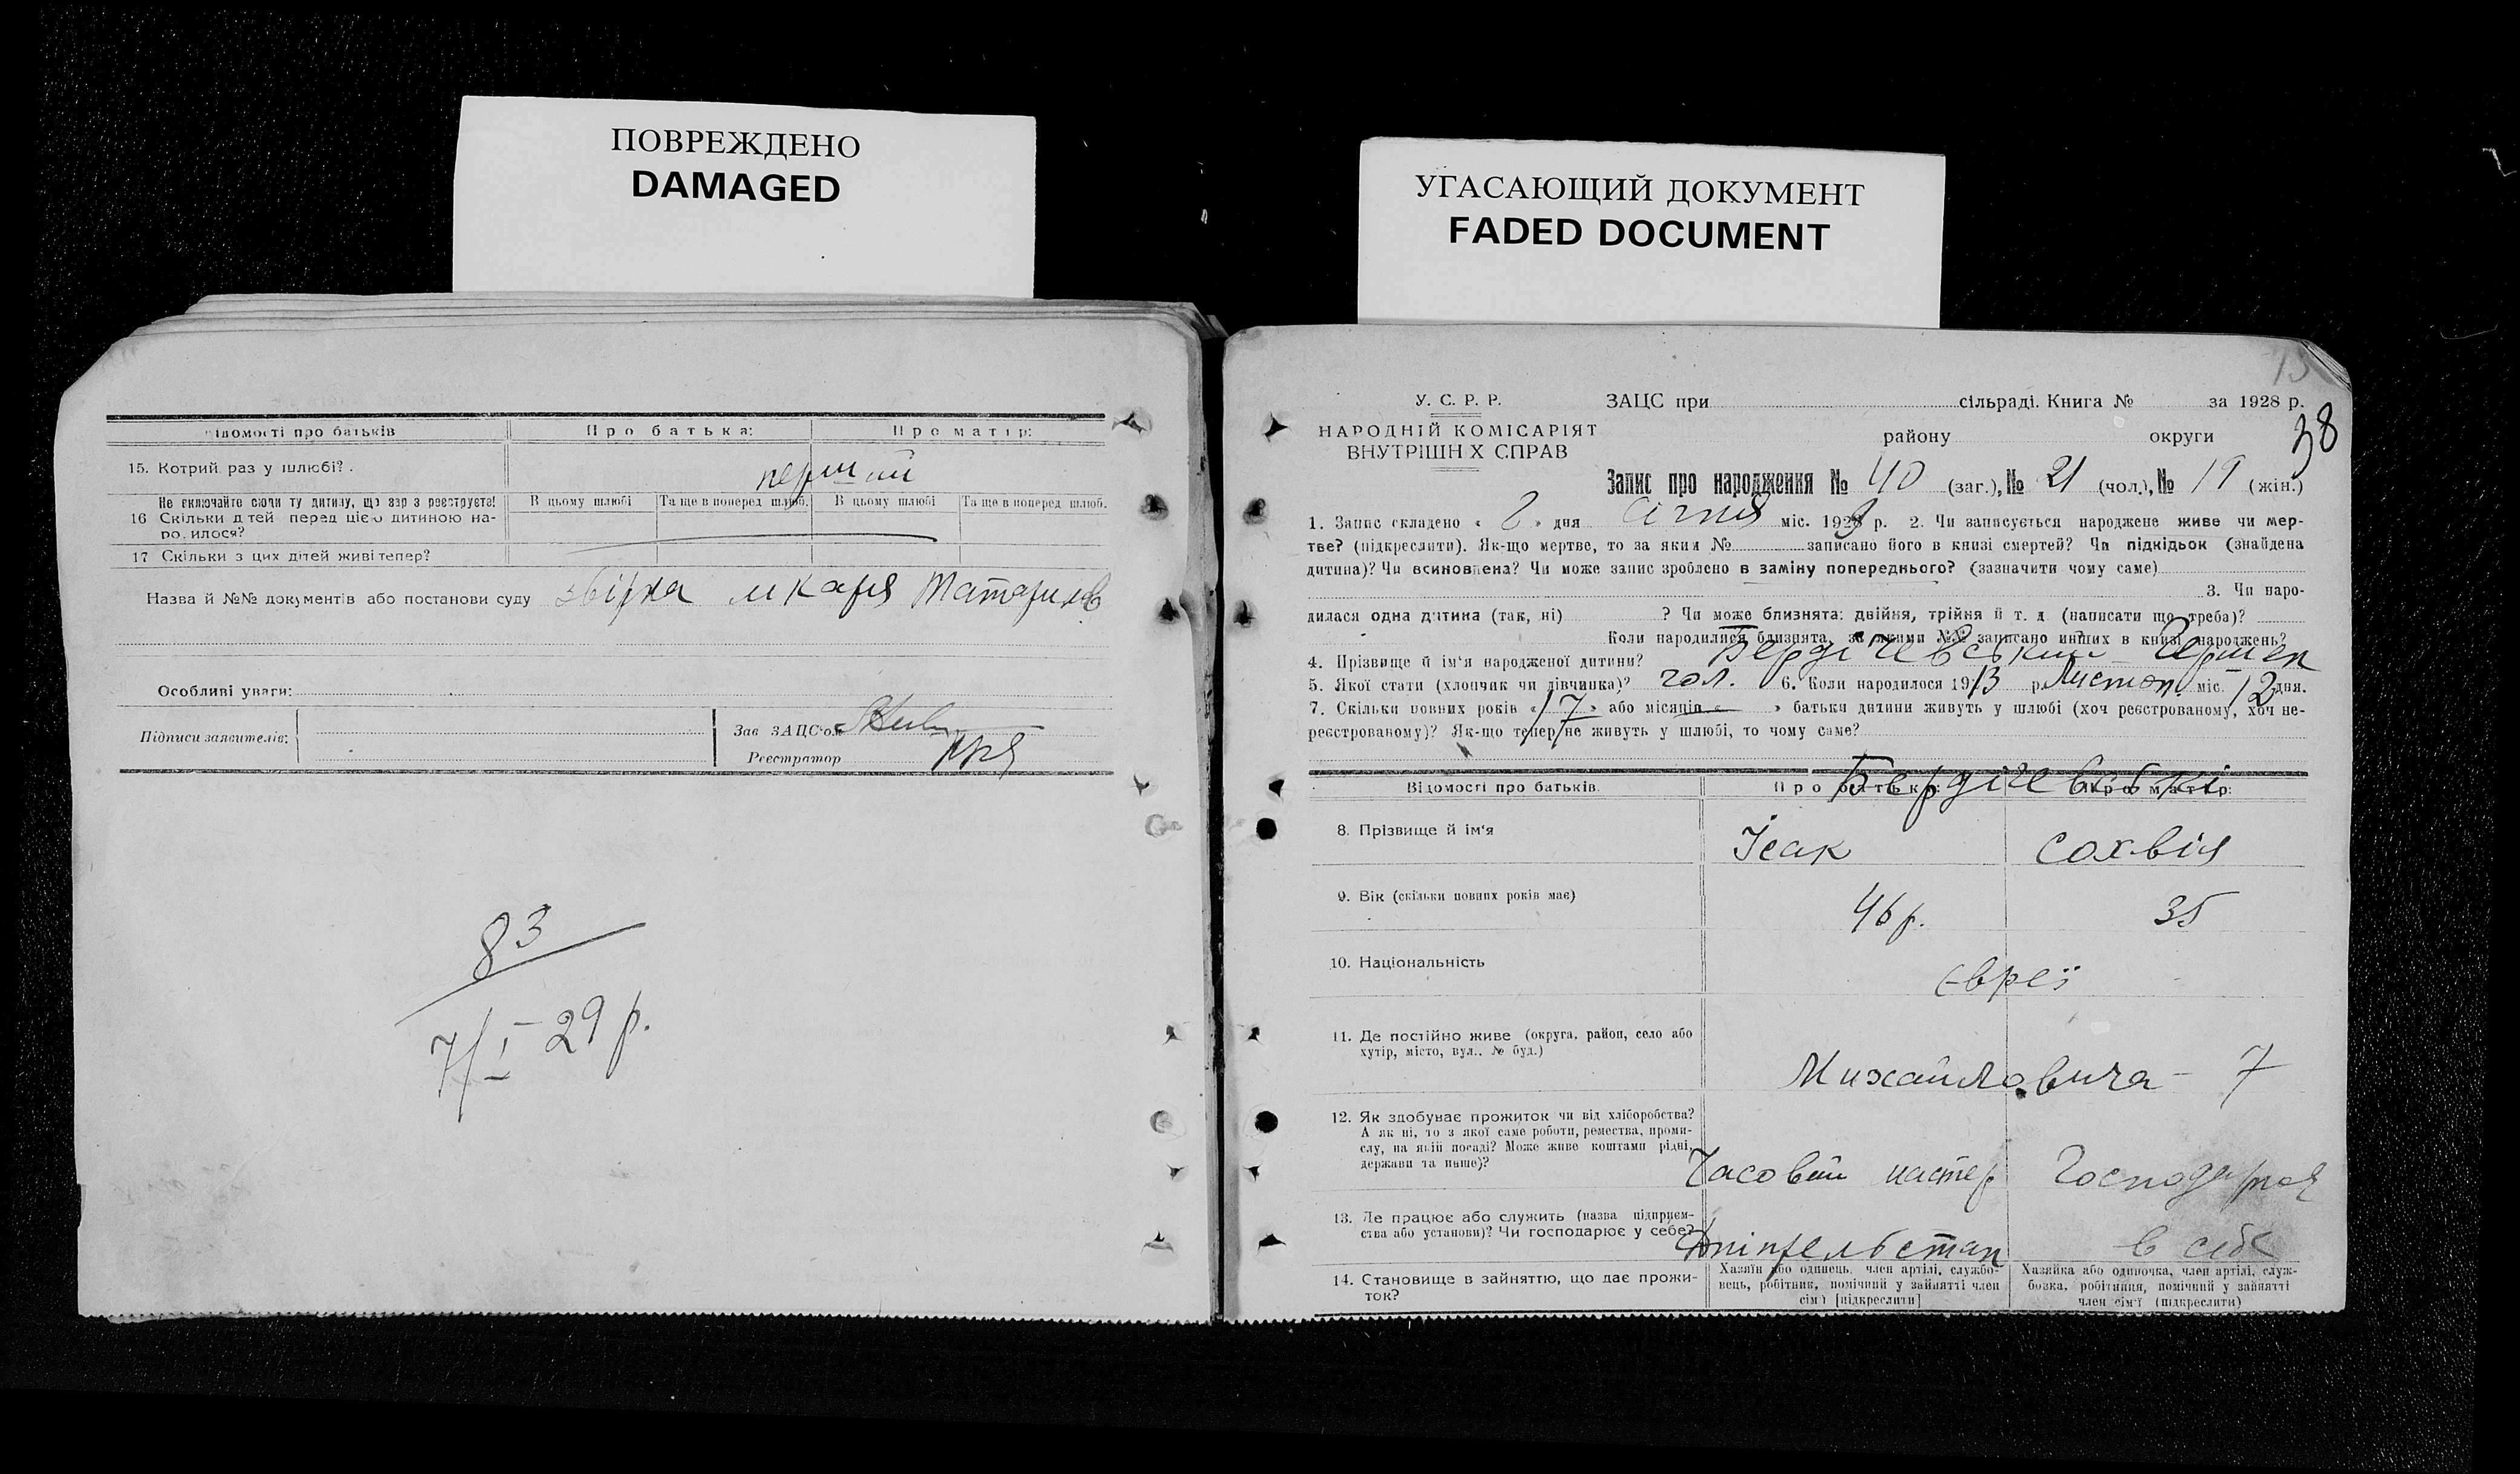 ПОВРЕЖДЕНО
DAMAGED
УГАСАЮЩИЙ ДОКУМЕНТ
FADED DOCUMENT
Відомості про батьків
Про батька:
Про матір:
15. Котрий раз у шлюбі?
перший
Не включайте сюди ту дитину, що зараз реєструєте!
16 Скільки дітей перед цією дитиною народилося?
В цьому шлюбі
Та ще в поперед шлюб.
В цьому шлюбі
Та ще в поперед шлюб.
17 Скільки з цих дітей живі тепер?
Назва й №№ документів або постанови суду
лікаря
Особливі уваги:
Підписи заявителів:
Зав ЗАЦС'ом
Реєстратор
83
7/I-29 р.
У. С. Р. Р.
НАРОДНІЙ КОМІСАРІЯТ
ВНУТРІШНІХ СПРАВ
ЗАЦС при сільраді. Книга № за 1928 р.
38
району округи
Запис про народження № 40 (заг.), № 21 (чол.), № 19 (жін.)
1. Запис складено « 2 » дня Січня міс. 1929 р. 2. Чи записується народжене живе чи мер-
тве? (підкреслити). Як-що мертве, то за яким № записано його в книзі смертей? Чи підкідьок (знайдена
дитина)? Чи всиновлена? Чи може запис зроблено в заміну попереднього? (зазначити чому саме)
3. Чи наро-
дилася одна дитина (так, ні) ? Чи може близнята: двійня, трійня й т. д. (написати що треба)?
Коли народилися близнята, за якими №№ записано инших в книзі народжень?
4. Прізвище й ім'я народженої дитини? Бердічевський Гершек
5. Якої стати (хлопчик чи дівчинка)? чол. 6. Коли народилося 1913 р. Листоп. міс. 12 дня.
7. Скільки повних років « 17 » або місяців « — » батьки дитини живуть у шлюбі (хоч реєстрованому, хоч не-
реєстрованому)? Як-що тепер не живуть у шлюбі, то чому саме?
Бердічевські
Відомості про батьків
Про батька:
Про матір:
8. Прізвище й ім'я
Ісак
Сохвія
9. Вік (скільки повних років має)
46 р.
35
10. Національність
євреї
11. Де постійно живе (округа, район, село або
хутір, місто, вул., № буд.)
Михайловича - 7
12. Як здобуває прожиток чи від хліборобства?
А як ні, то з якої саме роботи, ремества, проми-
слу, на якій посаді? Може живе коштами рідні,
держави та инше)?
Часовий мастер
Господарка
13. Де працює або служить (назва підприєм-
ства або установи)? Чи господарює у себе?
Дніпрельстан
в себе
14. Становище в зайняттю, що дає прожи-
ток?
Хазяїн або одинець, член артілі, службо-
вець, робітник, помічний у зайнятті член
сім'ї [підкреслити]
Хазяйка або одиночка, член артілі, служ-
бовка, робітниця, помічний у зайнятті
член сім'ї (підкреслити)